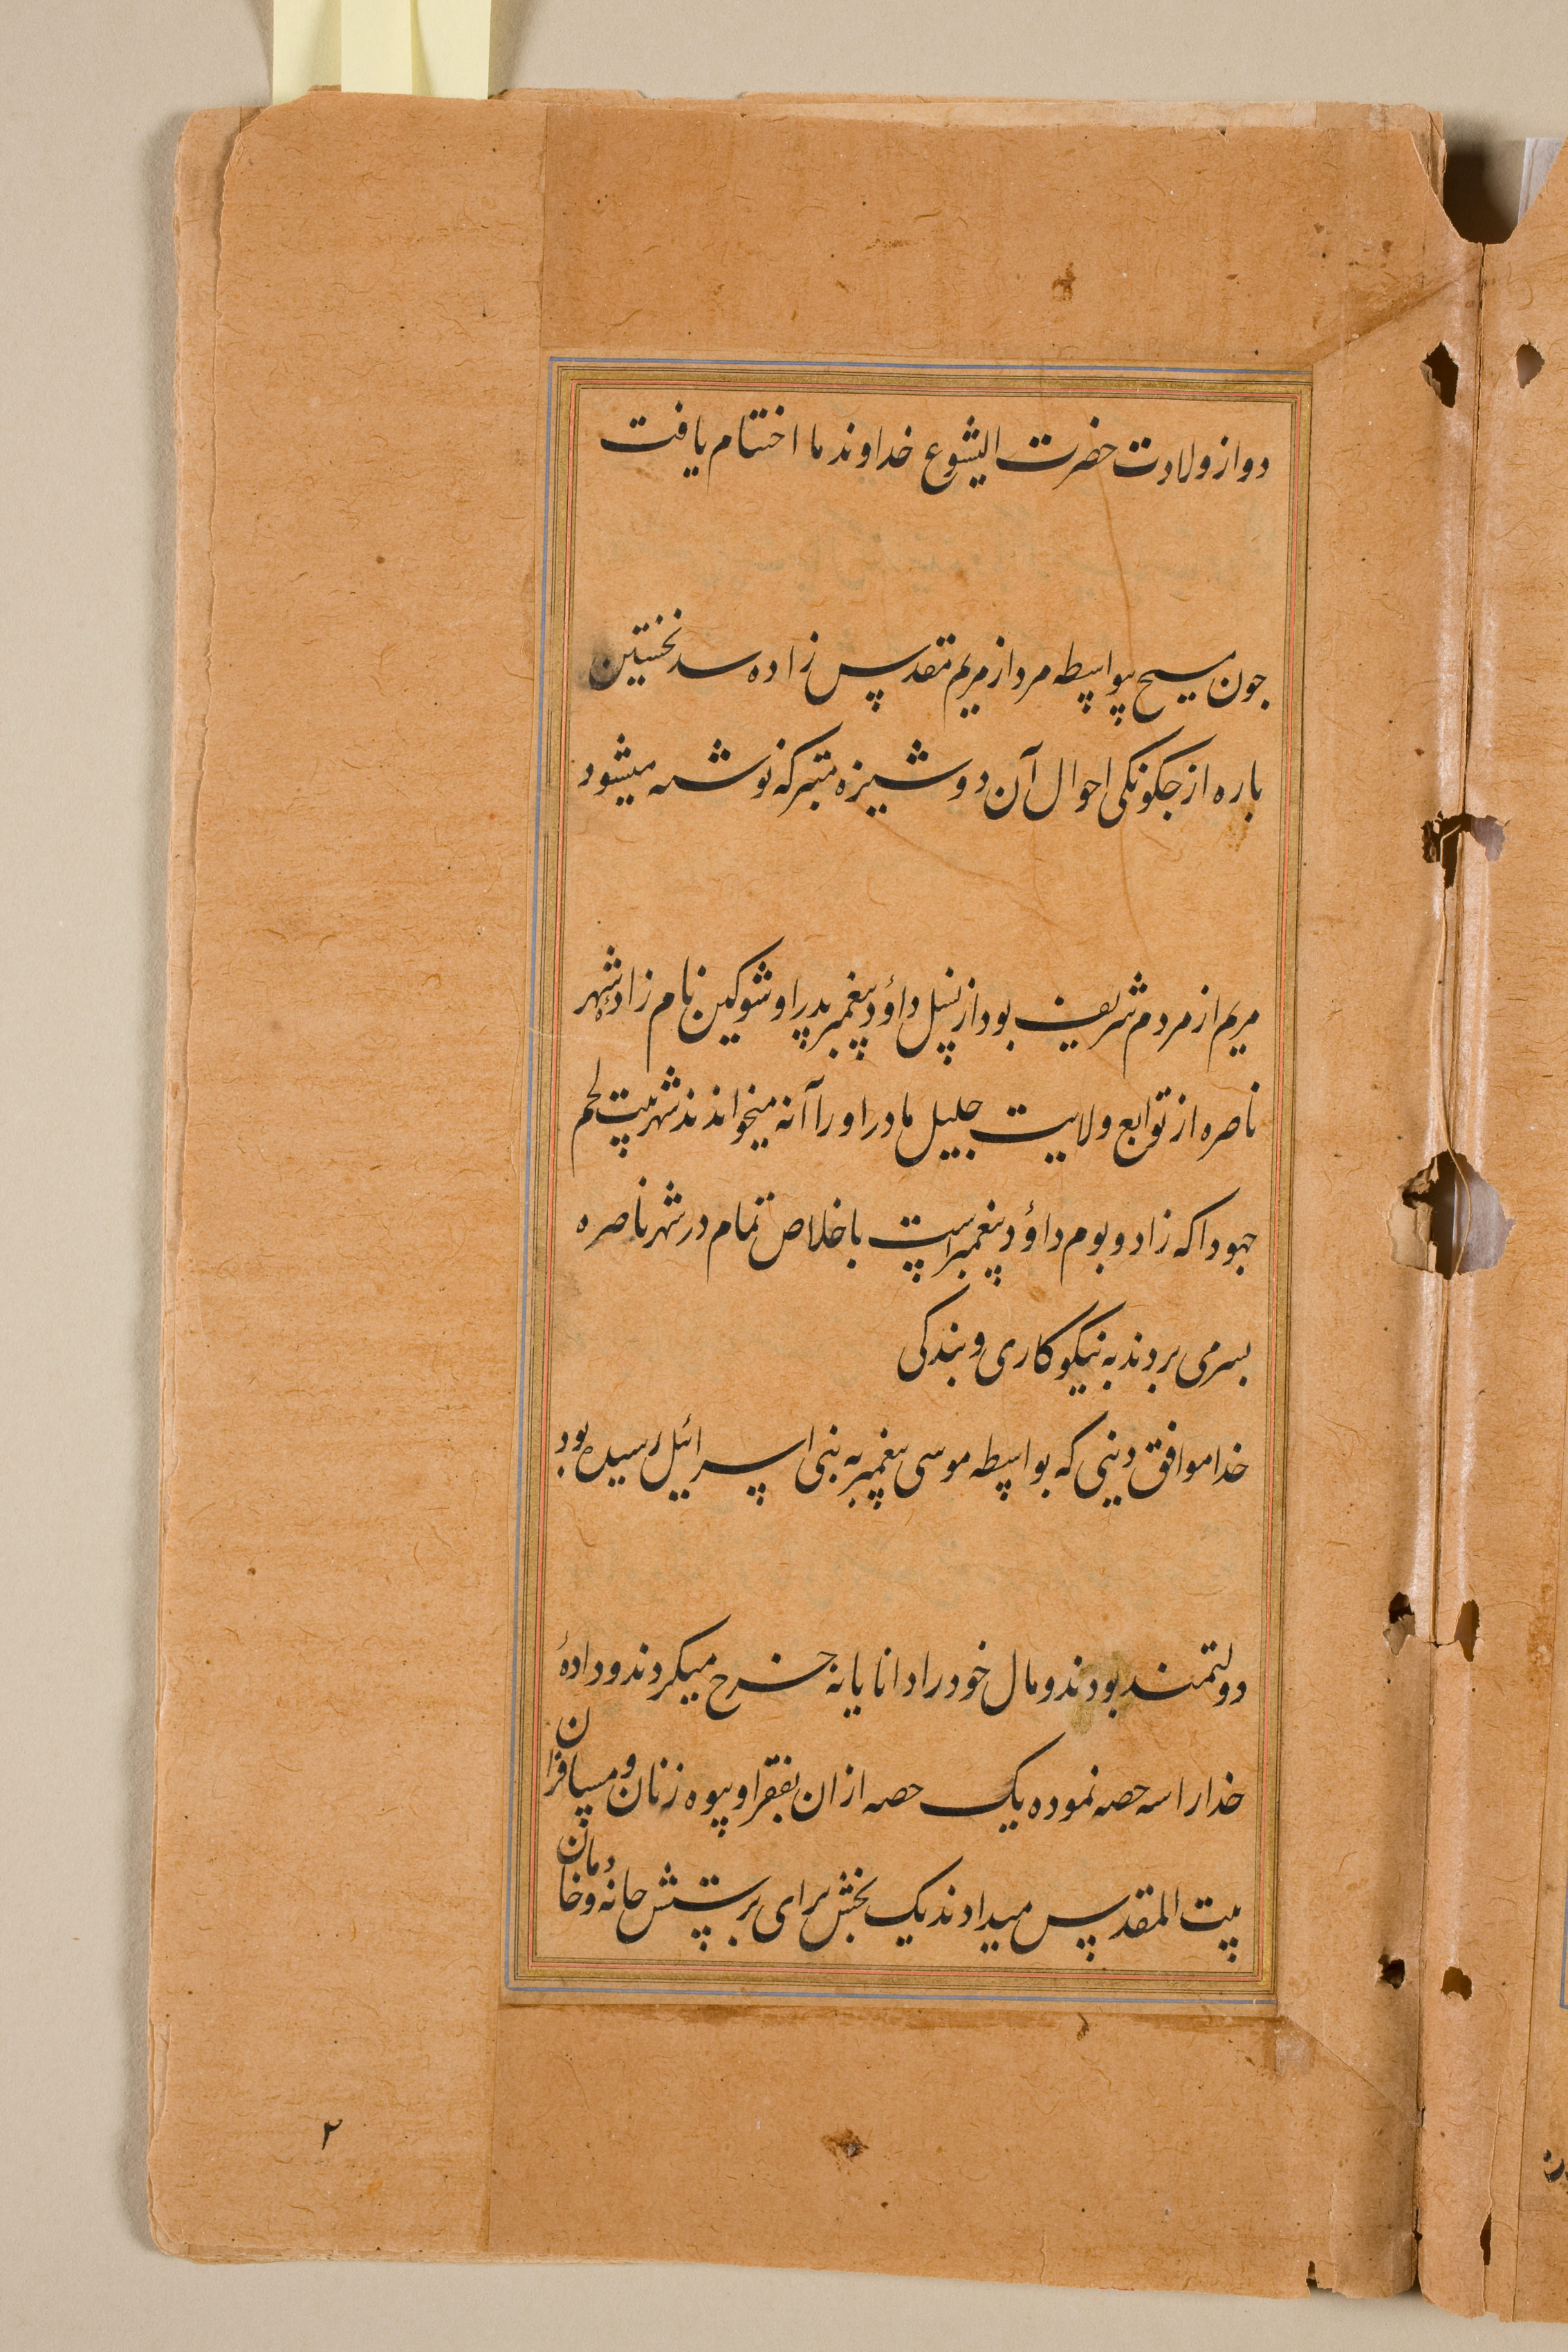 دو از ولادت حضرت الیشوع خداوند ما اختتام یافت
جون مسیح بیواسطه مرد از مریم مقدس زاده سد نخستین
باره از جکونکی احوال آن دوشیزه متبرکه نوشته میشود
مریم از مردم شریف بود از نسل داؤد پیغمبر پدر او شوکین نام زادهٔ شهر
ناصره از توابع ولایت جلیل مادر او را آنه میخواندند شهر بیت لحم
جهودا که زاد و بوم داؤد پیغمبر است باخلاص تمام در شهر ناصره
بسر می بردند به نیکوکاری و بندکی
خدا موافق دینی که بواسطه موسی پیغمبر به بنی اسرائیل رسیده بود
دولتمند بودند و مال خود را دانایانه خرج میکردند و دادهٔ
خدا را سه حصه نموده یک حصه ازان بفقرا و بیوه زنان و مسافران
بیت المقدس میدادند یک بخش برای پرستش خانه و خادمان
۲